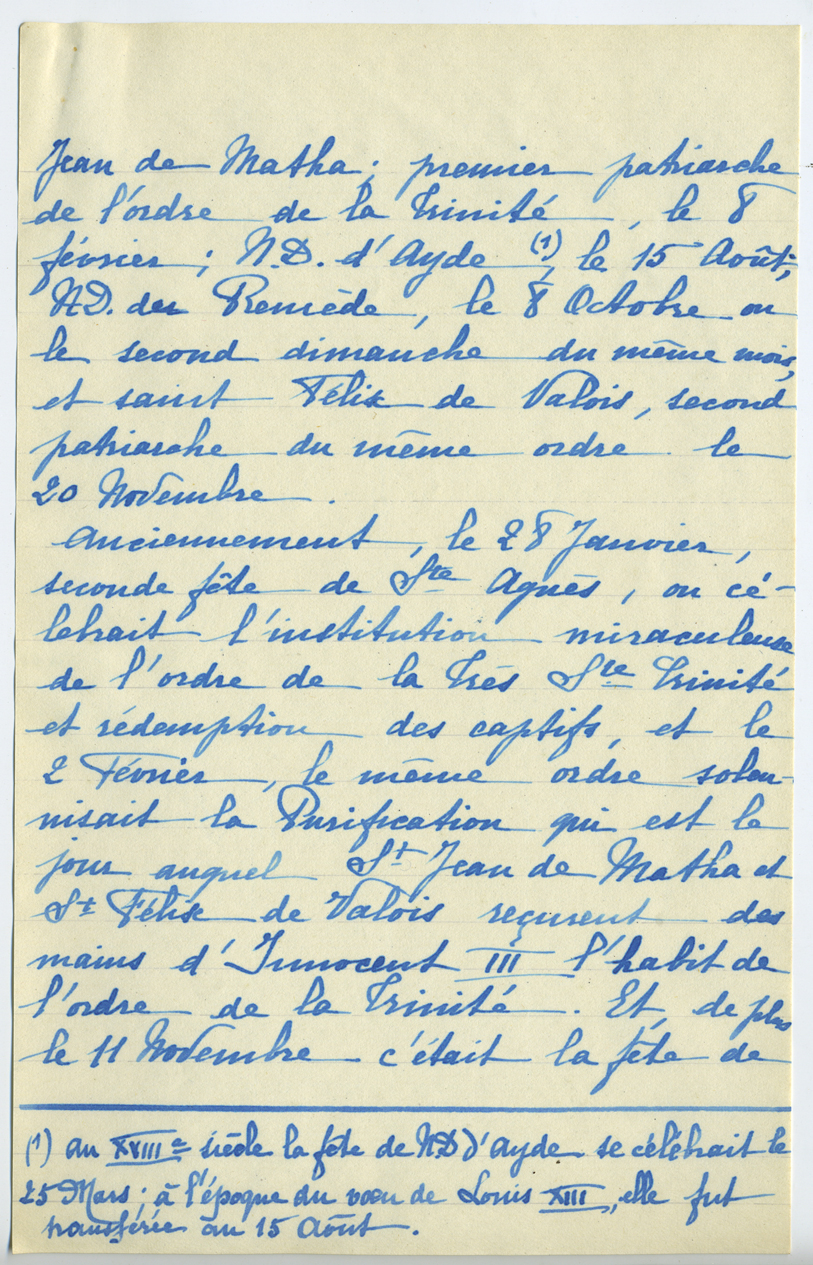 Jean de Matha ; premier patriarche
de l'ordre de la Trinité, le 8
février ; N.D. d'Ayde (1), le 15 Août,
N.D. du Remède, le 8 Octobre ou
le second dimanche du même mois,
et saint Félix de Valois, second
patriarche du même ordre le
20 Novembre.
Anciennement, le 28 Janvier,
seconde fête de Ste Agnès, on cé-
lebrait l'institution miraculeuse
de l'ordre de la Très Ste Trinité
et rédemption des captifs, et le
2 Février, le même ordre solen-
nisait la Purification qui est le
jour auquel St Jean de Matha et
St Félix de Valois reçurent des
mains d'Innocent III l'habit de
l'ordre de la Trinité. Et, de plus
le 11 Novembre c'était la fête de
(1) au XVIIIe siècle la fête de N.D d'Ayde se célébrait le
25 Mars ; à l'époque du vœu de Louis XIII, elle fut
transférée au 15 Août.